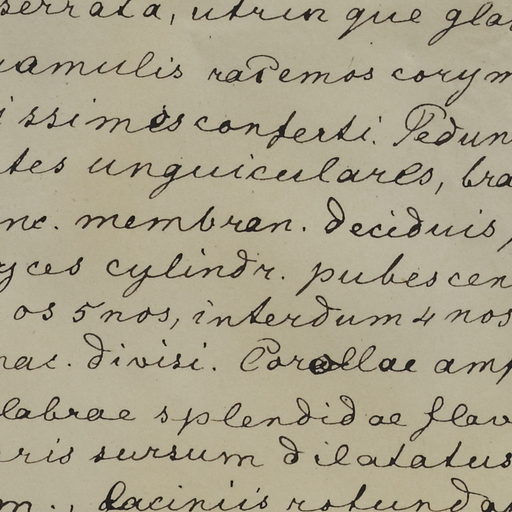 serrata, utrin que gla
amulis racemos corym
issimos conferti. Pedun
tes unguiculares, bra
nc. membran. deciduis,
yces cylindr. pubescen
os 5nos, interdum 4 nos
ac. divisi. Corollae amp
labrae splendidae flav
ris sursum dilatatus
m., laciniis rotunda